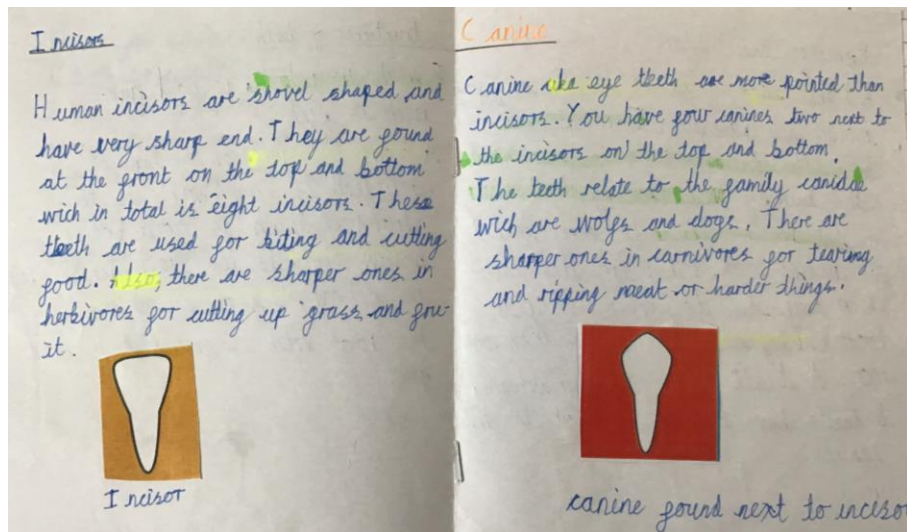 Incisors
Human incisors are shovel shaped and
have very sharp end. They are found
at the front on the top and bottom
wich in total is eight incisors. These
teeth are used for biting and cutting
food. Also, there are sharper ones in
herbivores for cutting up grass and fru-
it.
Incisor
Canine
Canine aka eye teeth are more pointed than
incisors. You have four canines two next to
the incisors on the top and bottom.
The teeth relate to the family canidae
wich are wolfs and dogs. There are
sharper ones in carnivores for tearing
and ripping meat or harder things.
canine found next to inciso